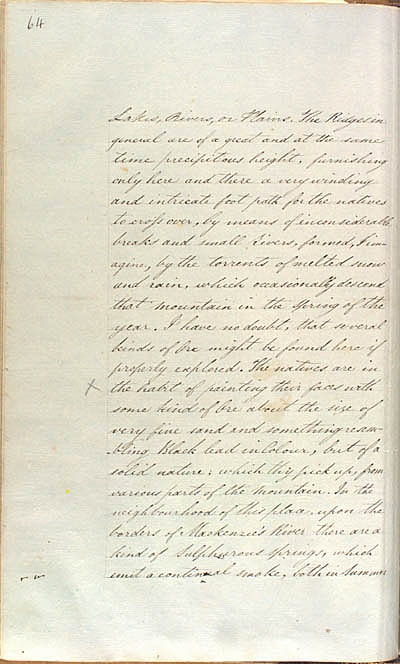 64
Lakes, Rivers, or Plains. The Ridges in
general are of a great and at the same
time precipitous height, furnishing
only here and there a very winding
and intricate foot path for the natives
to cross over, by means of inconsiderable
breaks and small Rivers, formed, I im-
agine, by the torrents of melted snow
and rain, which occasionally descend
that mountain in the Spring of the
year. I have no doubt, that several
kinds of Ore might be found here if
properly explored. The natives are in
x the habit of painting their faces with
some kind of Ore about the size of
very fine sand and something resem-
bling Black lead in Colour, but of a
solid nature; which they pick up, from
various parts of the Mountain. In the
neighbourhood of this place upon the
borders of Mackenzie's River there are a
kind of Sulphurous Springs, which
emit a continual smoke, both in Summer